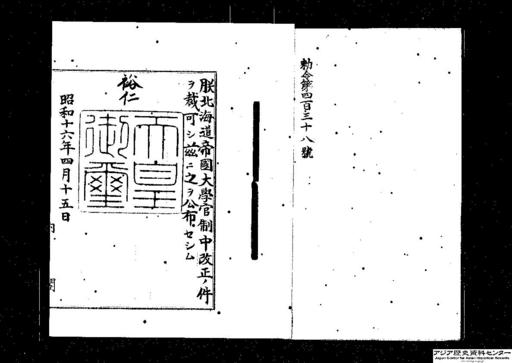 勅令第四百三十八號
朕北海道帝國大學官制中改正ノ件
ヲ裁可シ茲ニ之ヲ公布セシム
裕仁
天皇
御璽
昭和十六年四月十五日
内 閣
アジア歴史資料センター
Japan Center for Asian Historical Records